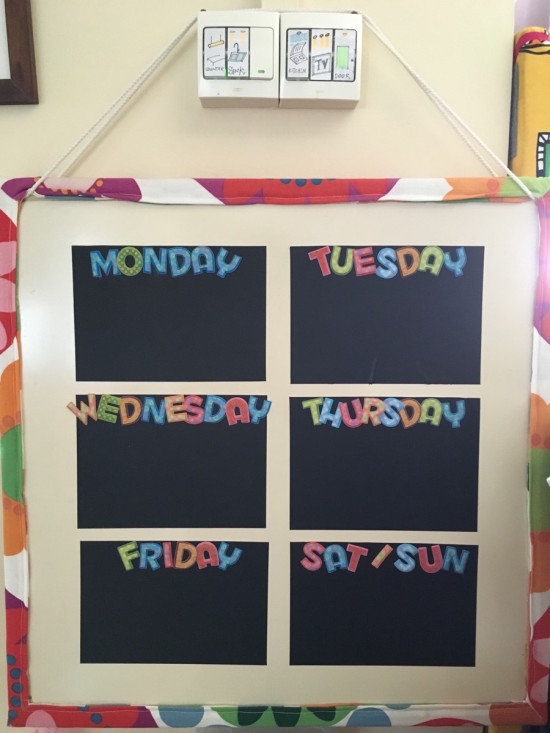 Sink KITCHEN TV DOOR
MONDAY TUESDAY
WEDNESDAY THURSDAY
FRIDAY SAT/SUN